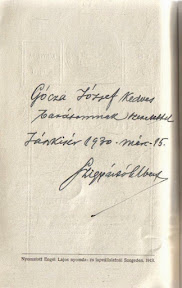 Gócza József kedves
barátomnak szeretettel
Jánkisér 1930. márc. 15.
Szigyártó Albert
Nyomatott Engel Lajos nyomda- és lapvállalatánál Szegeden, 1919.